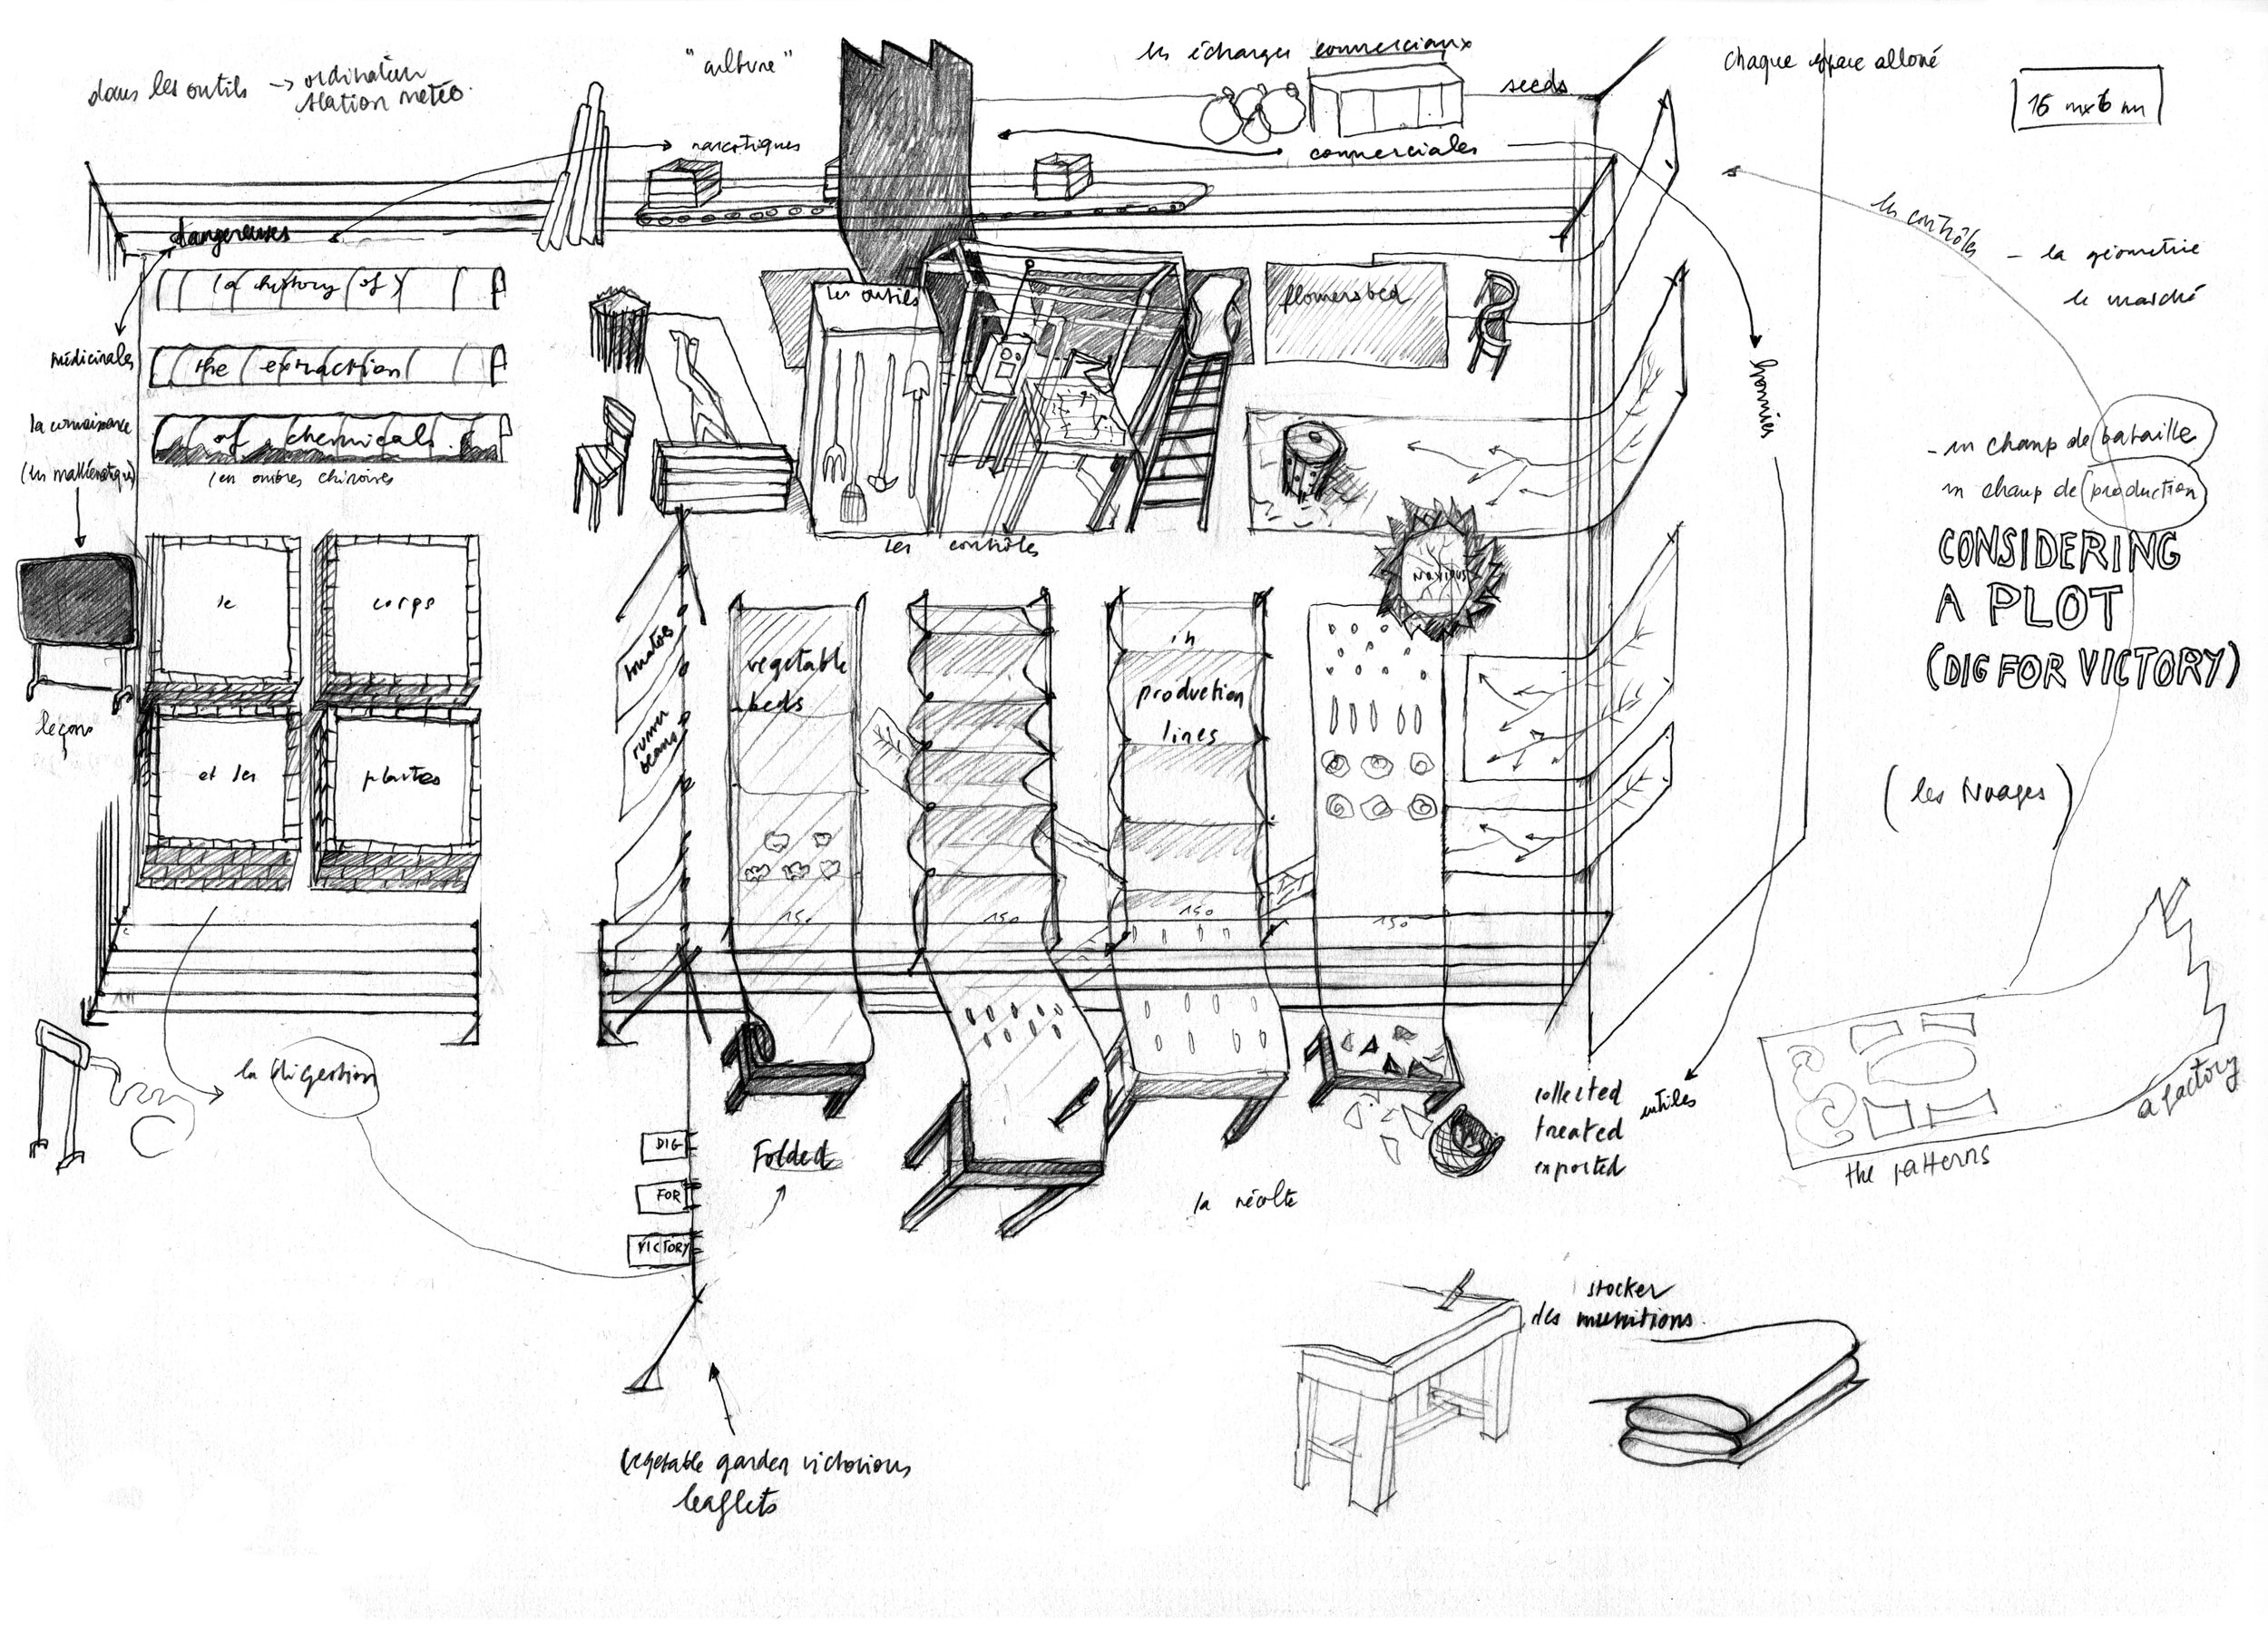 dans les outils → ordinateur
station météo.
"culture"
les échanges commerciaux
seeds
chaque espace alloué
16 m x 6 m
narcotiques
commerciales
dangereuses
les contrôles
- la géometrie
le marché
la history of
les outils
flowersbed
médicinales
the extraction
bannies
la connaissance
of chemicals.
(les mathématiques)
(en ombres chinoises
- un champ de bataille
un champ de production
les contrôles
CONSIDERING
A PLOT
(DIG FOR VICTORY)
noxious
le
corps
tomatoes
vegetable
beds
in
production
lines
leçons
runner
beans
et les
plantes
(les Nuages)
150
150
150
150
la digestion
collected
treated
exported
utiles
a factory
the patterns
DIG
FOR
VICTORY
Folded
la récolte
stocker
des munitions.
vegetable garden victorious
leaflets